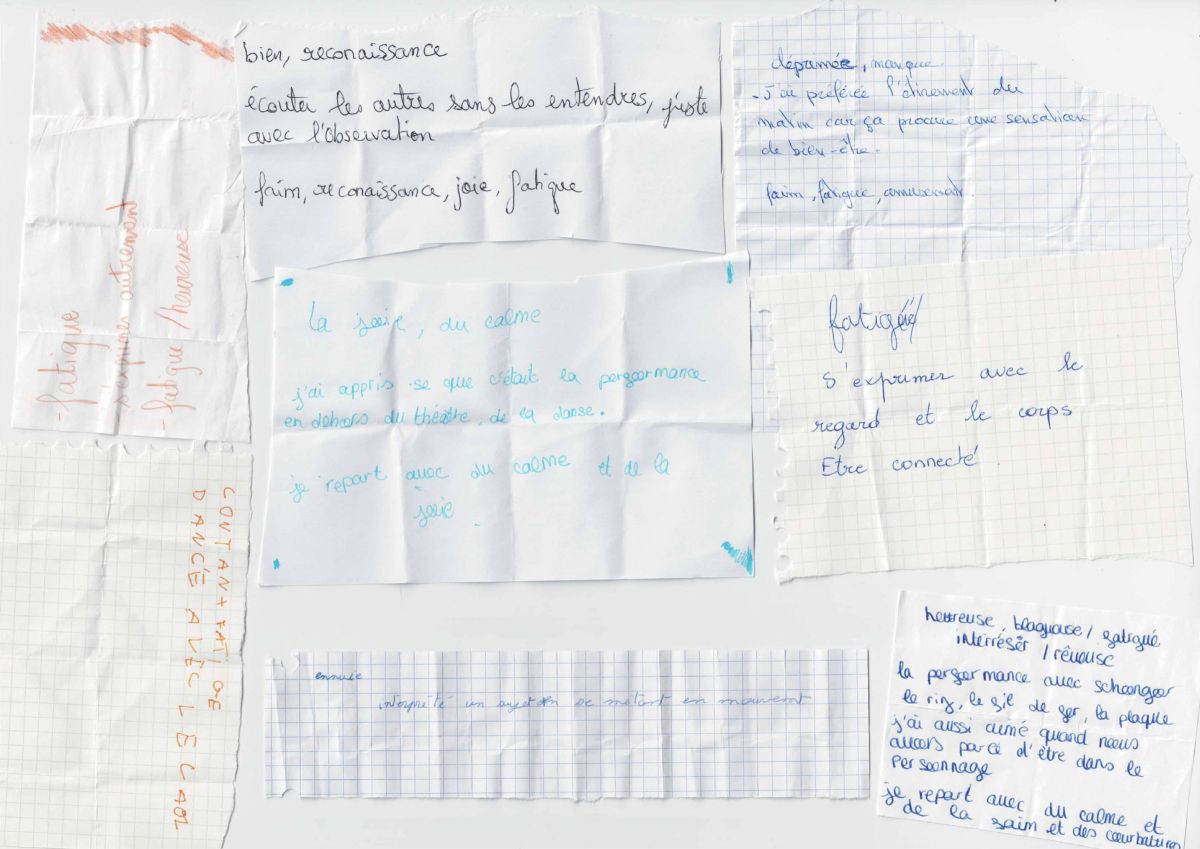 - fatigue
s'exprimer autrement
- fatigue / heureuse
bien, reconaissance
écouter les autres sans les entendres, juste
avec l'observation
faim, reconaissance, joie, fatigue
déprimée, manque
- J'ai préférée l'étirement du
matin car ça procure une sensation
de bien-être.
faim, fatigue, amusement.
La joie, du calme
j'ai appris se que c'était la performance
en dehors du théâtre, de la danse.
je repart avec du calme et de la
joie.
fatigué
S'exprimer avec le
regard et le corps
Etre connecté
CONTAN + FATIGUE
DANCÉ AVEC LE
ennuie
interprété un sujet en se métant en mouvement
heureuse, blagueuse / fatigué
interrésér / rêveuse
la performance avec
le riz, le fil de fer, la plaque
j'ai aussi aimé quand nous
avons parlé d'être dans le
personnage
je repart avec du calme et
de la faim et des courbatures